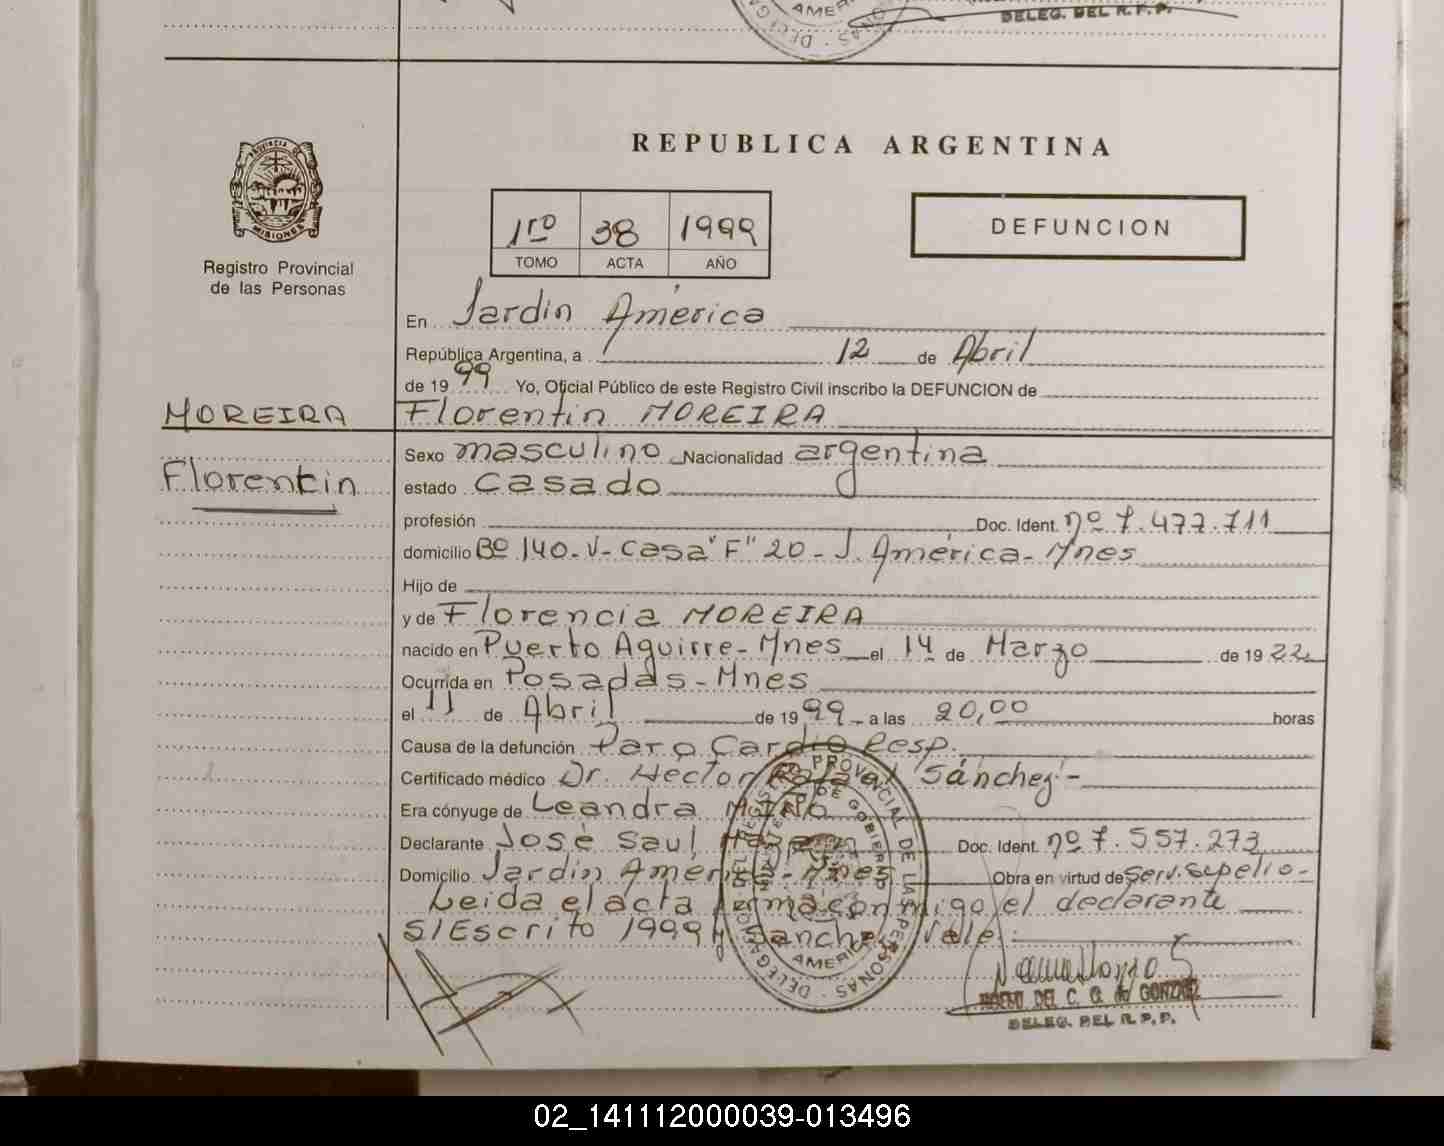 DELEG. DEL R.P.P.
REPUBLICA ARGENTINA
PROVINCIA DE MISIONES
Registro Provincial
de las Personas
1ro 38 1999
TOMO ACTA AÑO
DEFUNCION
En Jardin América
República Argentina, a 12 de Abril
de 19 99 Yo, Oficial Público de este Registro Civil inscribo la DEFUNCION de
MOREIRA Florentin MOREIRA
Florentin
Sexo masculino Nacionalidad argentina
estado casado
profesión Doc. Ident. nº 7.477.711
domicilio Bº 140-V-Casa "F" 20-J. América-Mnes
Hijo de
y de Florencia MOREIRA
nacido en Puerto Aguirre-Mnes el 14 de Marzo de 19 22
Ocurrida en Posadas-Mnes
el 11 de Abril de 19 99 a las 20,00 horas
Causa de la defunción Paro Cardio Resp.
Certificado médico Dr. Hector Sánchez-
Era cónyuge de Leandra
Declarante José Saul Doc. Ident. nº 7.557.273
Domicilio Jardin América-Mnes Obra en virtud de Serv. sepelio-
Leida el acta firma conmigo el declarante
S/Escrito 1999 y Sanchez Vale
REGISTRO PROVINCIAL DE LAS PERSONAS · DELEGACION
DE GOBIERNO
AMERICA
DEL C. G. de GONZALEZ
DELEG. DEL R.P.P.
02_141112000039-013496